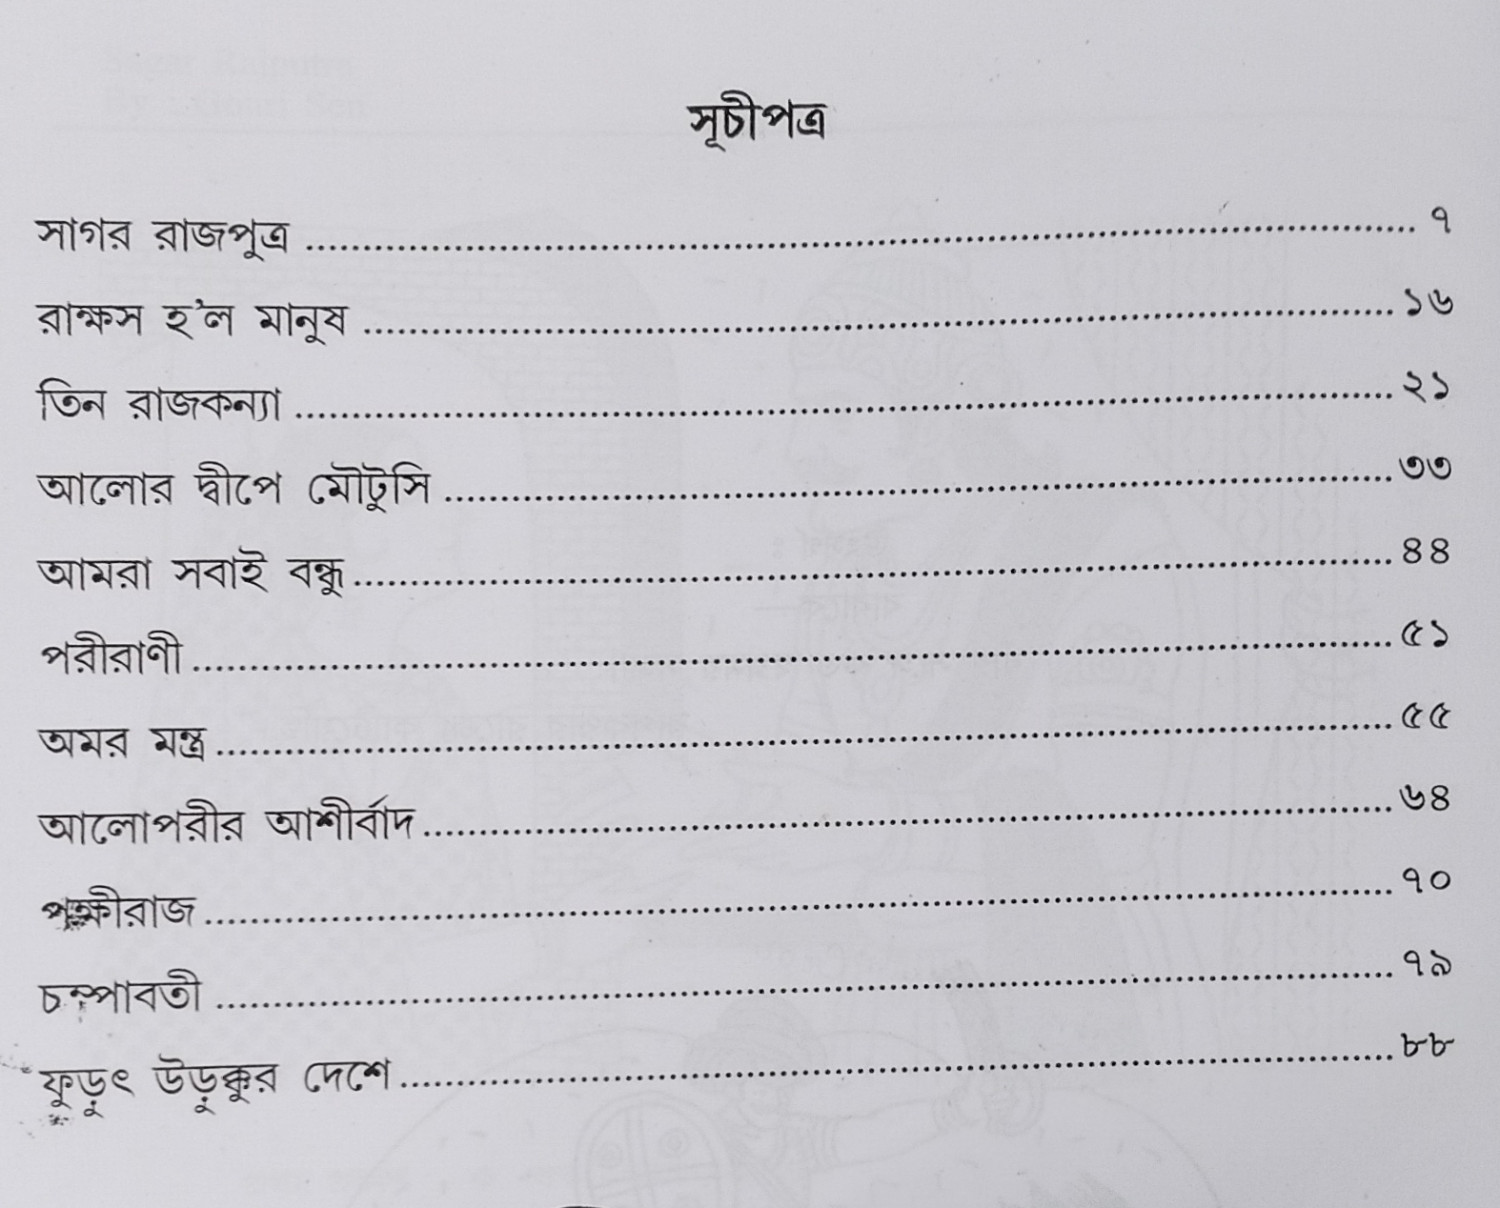 সূচীপত্র
সাগর রাজপুত্র ........................................................ ৭
রাক্ষস হ'ল মানুষ ........................................................ ১৬
তিন রাজকন্যা ........................................................ ২১
আলোর দ্বীপে মৌটুসি ........................................................ ৩৩
আমরা সবাই বন্ধু ........................................................ ৪৪
পরীরাণী ........................................................ ৫১
অমর মন্ত্র ........................................................ ৫৫
আলোপরীর আশীর্বাদ ........................................................ ৬৪
পক্ষীরাজ ........................................................ ৭০
চম্পাবতী ........................................................ ৭৯
ফুড়ুৎ উড়ুক্কুর দেশে ........................................................ ৮৮